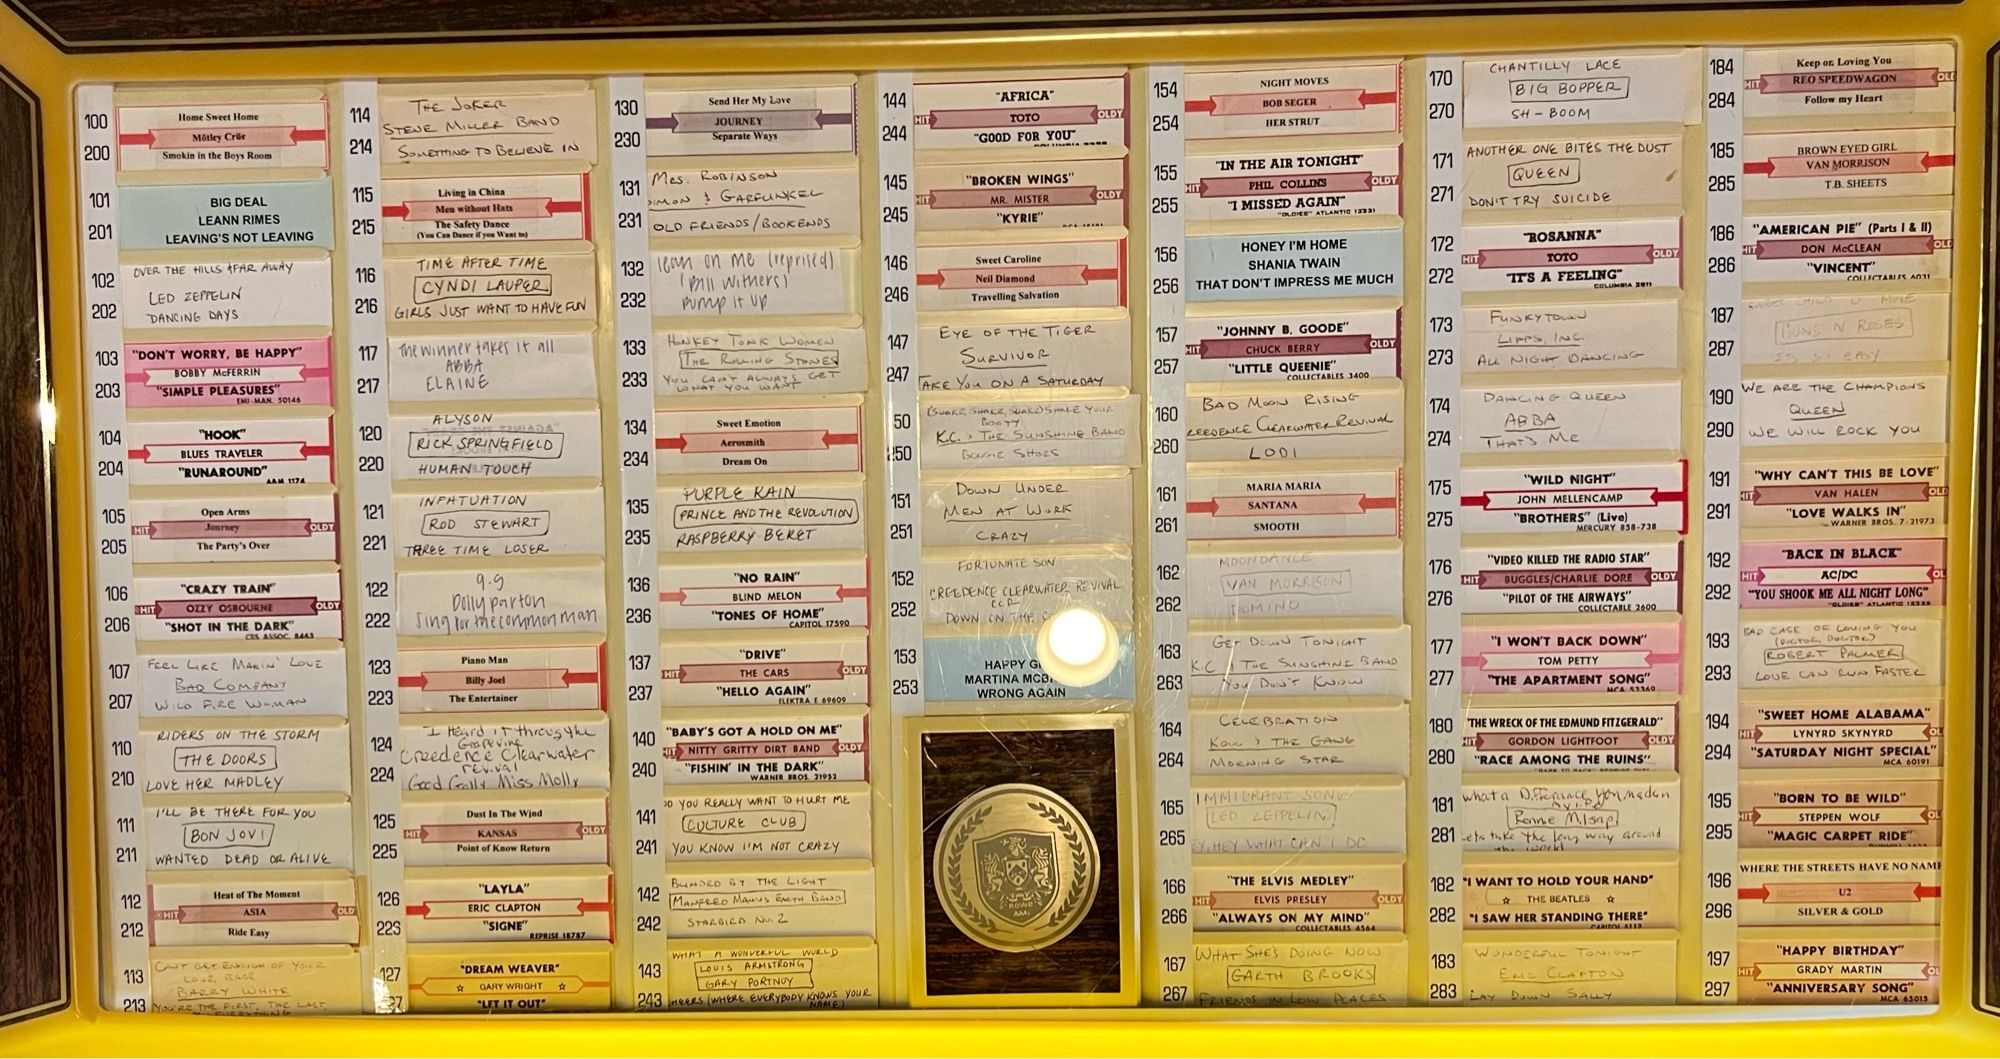 100
Home Sweet Home
Mötley Crüe
200
Smokin in the Boys Room
101
BIG DEAL
LEANN RIMES
201
LEAVING'S NOT LEAVING
102
OVER THE HILLS & FAR AWAY
LED ZEPPELIN
202
DANCING DAYS
103
"DON'T WORRY, BE HAPPY"
BOBBY McFERRIN
203
"SIMPLE PLEASURES"
EMI-MAN. 50146
104
"HOOK"
BLUES TRAVELER
204
"RUNAROUND"
A&M 1176
105
Open Arms
HIT Journey OLDY
205
The Party's Over
106
"CRAZY TRAIN"
HIT OZZY OSBOURNE OLDY
206
"SHOT IN THE DARK"
CBS ASSOC. 8463
107
FEEL LIKE MAKIN' LOVE
BAD COMPANY
207
WILD FIRE WOMAN
110
RIDERS ON THE STORM
THE DOORS
210
LOVE HER MADLEY
111
I'LL BE THERE FOR YOU
BON JOVI
211
WANTED DEAD OR ALIVE
112
Heat of The Moment
HIT ASIA OLD
212
Ride Easy
113
CAN'T GET ENOUGH OF YOUR
LOVE, BABE
BARRY WHITE
213
YOU'RE THE FIRST, THE LAST,
MY EVERYTHING
114
THE JOKER
STEVE MILLER BAND
214
SOMETHING TO BELIEVE IN
115
Living in China
Men without Hats
215
The Safety Dance
(You Can Dance if you Want to)
116
TIME AFTER TIME
CYNDI LAUPER
216
GIRLS JUST WANT TO HAVE FUN
117
the winner takes it all
ABBA
217
ELAINE
120
ALYSON
RICK SPRINGFIELD
220
HUMAN TOUCH
121
INFATUATION
ROD STEWART
221
THREE TIME LOSER
122
9-5
Dolly parton
222
Sing for the common man
123
Piano Man
Billy Joel
223
The Entertainer
124
I Heard it through the
Grapevine
Creedence Clearwater
revival
224
Good Golly Miss Molly
125
Dust In The Wind
HIT KANSAS OLDY
225
Point of Know Return
126
"LAYLA"
ERIC CLAPTON
226
"SIGNE"
REPRISE 18787
127
"DREAM WEAVER"
GARY WRIGHT
"LET IT OUT"
130
Send Her My Love
JOURNEY
230
Separate Ways
131
MRS. ROBINSON
SIMON & GARFUNKEL
231
OLD FRIENDS/BOOKENDS
132
lean on me (reprised)
(Bill Withers)
232
Pump it up
133
HONKEY TONK WOMEN
THE ROLLING STONES
233
YOU CAN'T ALWAYS GET
WHAT YOU WANT
134
Sweet Emotion
Aerosmith
234
Dream On
135
PURPLE RAIN
PRINCE AND THE REVOLUTION
235
RASPBERRY BERET
136
"NO RAIN"
BLIND MELON
236
"TONES OF HOME"
CAPITOL 17590
137
"DRIVE"
HIT THE CARS OLDY
237
"HELLO AGAIN"
ELEKTRA E 69609
140
"BABY'S GOT A HOLD ON ME"
HIT NITTY GRITTY DIRT BAND OLDY
240
"FISHIN' IN THE DARK"
WARNER BROS. 21952
141
DO YOU REALLY WANT TO HURT ME
CULTURE CLUB
241
YOU KNOW I'M NOT CRAZY
142
BLINDED BY THE LIGHT
MANFRED MANNS EARTH BAND
242
STARBIRD NO. 2
143
WHAT A WONDERFUL WORLD
LOUIS ARMSTRONG
GARY PORTNOY
243
CHEERS (WHERE EVERYBODY KNOWS YOUR
NAME)
144
"AFRICA"
HIT TOTO OLDY
244
"GOOD FOR YOU"
145
"BROKEN WINGS"
HIT MR. MISTER OLDY
245
"KYRIE"
146
Sweet Caroline
Neil Diamond
246
Travelling Salvation
147
EYE OF THE TIGER
SURVIVOR
247
TAKE YOU ON A SATURDAY
50
(SHAKE, SHAKE, SHAKE) SHAKE YOUR
BOOTY
K.C. & THE SUNSHINE BAND
250
BOOGIE SHOES
151
DOWN UNDER
MEN AT WORK
251
CRAZY
152
FORTUNATE SON
CREEDENCE CLEARWATER REVIVAL
CCR
252
DOWN ON THE
153
HAPPY
MARTINA
253
WRONG AGAIN
ROWE
AMI
154
NIGHT MOVES
BOB SEGER
254
HER STRUT
155
"IN THE AIR TONIGHT"
HIT PHIL COLLINS OLDY
255
"I MISSED AGAIN"
"OLDIES" ATLANTIC 13231
156
HONEY I'M HOME
SHANIA TWAIN
256
THAT DON'T IMPRESS ME MUCH
157
"JOHNNY B. GOODE"
HIT CHUCK BERRY OLDY
257
"LITTLE QUEENIE"
COLLECTABLES 3400
160
BAD MOON RISING
CREEDENCE CLEARWATER REVIVAL
260
LODI
161
MARIA MARIA
SANTANA
261
SMOOTH
162
MOONDANCE
VAN MORRISON
262
DOMINO
163
GET DOWN TONIGHT
K.C. & THE SUNSHINE BAND
263
YOU DON'T KNOW
164
CELEBRATION
KOOL & THE GANG
264
MORNING STAR
165
IMMIGRANT SONG
LED ZEPPELIN
265
HEY, HEY WHAT CAN I DO
166
"THE ELVIS MEDLEY"
HIT ELVIS PRESLEY OLDY
266
"ALWAYS ON MY MIND"
COLLECTABLES 4564
167
WHAT SHE'S DOING NOW
GARTH BROOKS
267
FRIENDS IN LOW PLACES
170
CHANTILLY LACE
BIG BOPPER
270
SH-BOOM
171
ANOTHER ONE BITES THE DUST
QUEEN
271
DON'T TRY SUICIDE
172
"ROSANNA"
HIT TOTO OLDY
272
"IT'S A FEELING"
COLUMBIA
173
FUNKYTOWN
LIPPS, INC.
273
ALL NIGHT DANCING
174
DANCING QUEEN
ABBA
274
THAT'S ME
175
"WILD NIGHT"
JOHN MELLENCAMP
275
"BROTHERS" (Live)
MERCURY 858-738
176
"VIDEO KILLED THE RADIO STAR"
HIT BUGGLES/CHARLIE DORE OLDY
276
"PILOT OF THE AIRWAYS"
COLLECTABLE 2600
177
"I WON'T BACK DOWN"
TOM PETTY
277
"THE APARTMENT SONG"
MCA 53369
180
"THE WRECK OF THE EDMUND FITZGERALD"
HIT GORDON LIGHTFOOT OLDY
280
"RACE AMONG THE RUINS"
181
what a Difference You maden
my life
Ronnie Milsap
281
Lets take the long way around
the world
182
"I WANT TO HOLD YOUR HAND"
THE BEATLES
282
"I SAW HER STANDING THERE"
CAPITOL 5112
183
WONDERFUL TONIGHT
ERIC CLAPTON
283
LAY DOWN SALLY
184
Keep on Loving You
HIT REO SPEEDWAGON OL
284
Follow my Heart
185
BROWN EYED GIRL
VAN MORRISON
285
T.B. SHEETS
186
"AMERICAN PIE" (Parts I & II)
HIT DON McCLEAN OL
286
"VINCENT"
COLLECTABLES 6031
187
SWEET CHILD O' MINE
GUNS N ROSES
287
IT'S SO EASY
190
WE ARE THE CHAMPIONS
QUEEN
290
WE WILL ROCK YOU
191
"WHY CAN'T THIS BE LOVE"
HIT VAN HALEN OL
291
"LOVE WALKS IN"
WARNER BROS. 7-21973
192
"BACK IN BLACK"
HIT AC/DC OL
292
"YOU SHOOK ME ALL NIGHT LONG"
"OLDIES" ATLANTIC
193
BAD CASE OF LOVING YOU
(DOCTOR, DOCTOR)
ROBERT PALMER
293
LOVE CAN RUN FASTER
194
"SWEET HOME ALABAMA"
HIT LYNYRD SKYNYRD OL
294
"SATURDAY NIGHT SPECIAL"
MCA 60191
195
"BORN TO BE WILD"
HIT STEPPEN WOLF OL
295
"MAGIC CARPET RIDE"
196
WHERE THE STREETS HAVE NO NAME
U2
296
SILVER & GOLD
197
"HAPPY BIRTHDAY"
HIT GRADY MARTIN OL
297
"ANNIVERSARY SONG"
MCA 65015